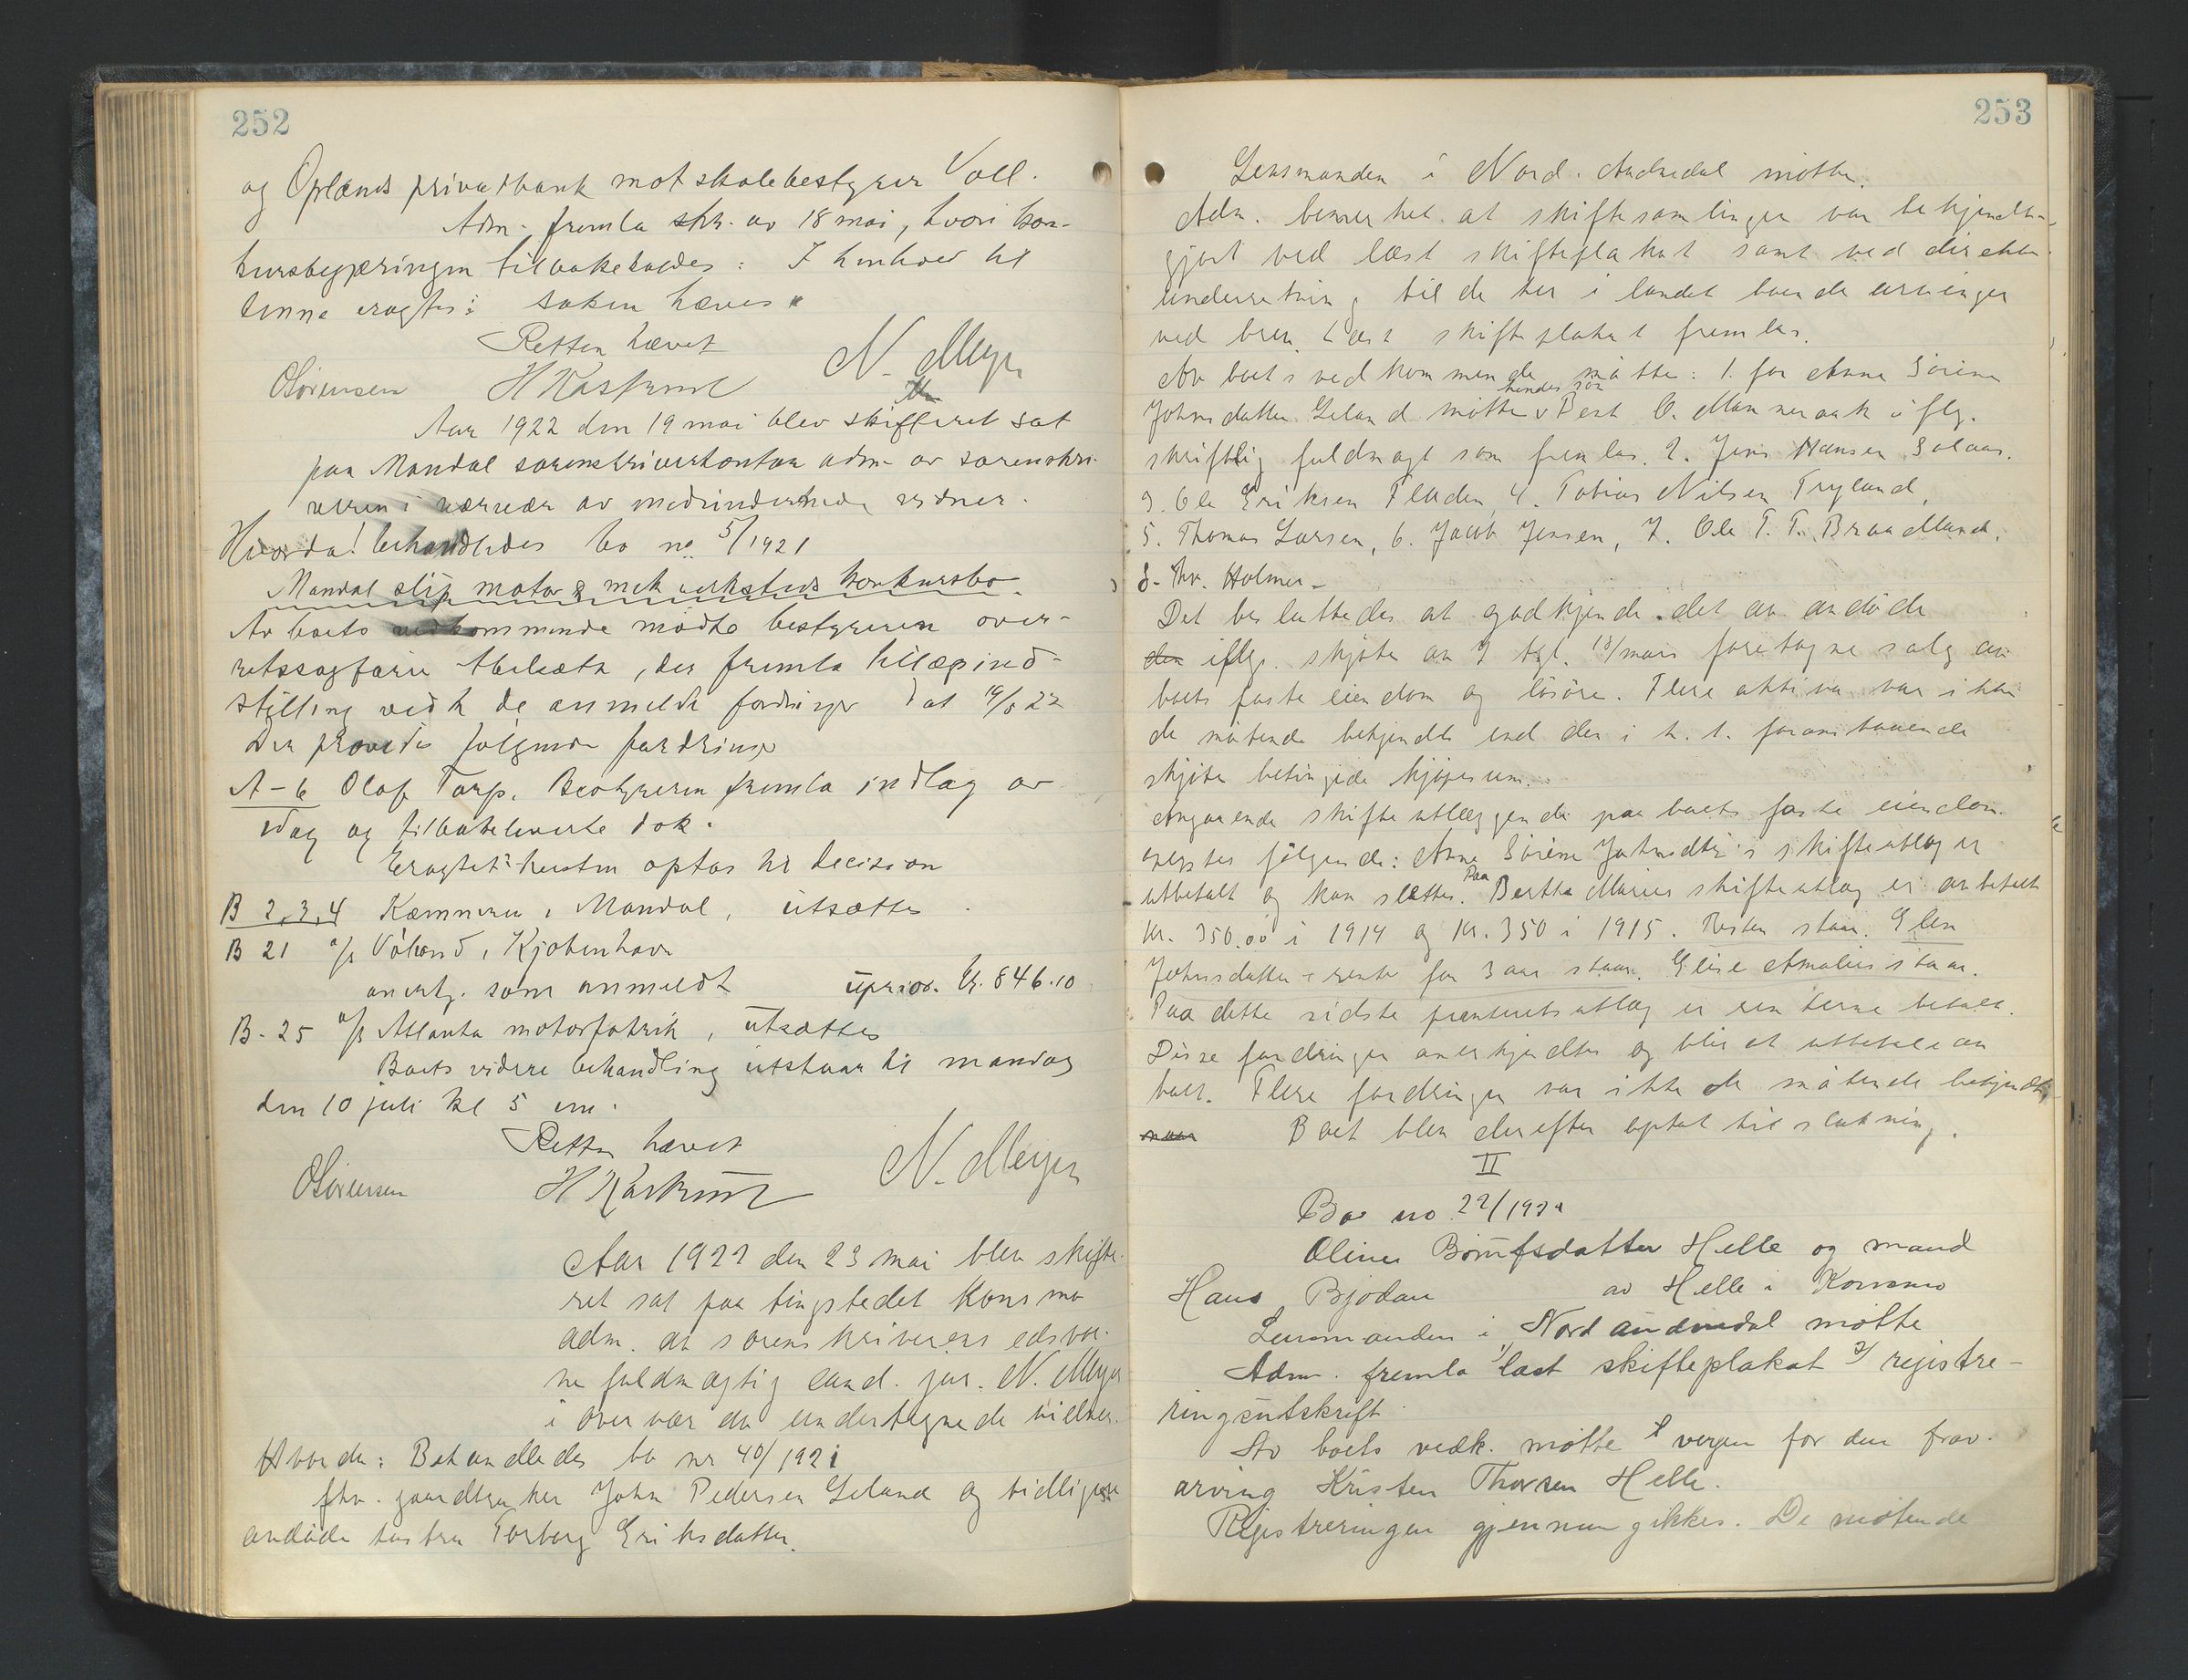 252
og Oplands privatbank mot skolebestyrer Voll.
Adm. fremla skr. av 18 mai, hvori kon-
kursbegjæringen tilbakekaldes: I henhold til
denne eragtes: saken hæves.
Retten hævet
OSörensen H Kaskrud N. Meyer
Aar 1922 den 19 mai blev skifteret sat
paa Mandal sorenskriverkontor adm. av sorenskri-
veren i nærvær av medundertegnede vidner.
Hvorda! behandledes bo no. 5/1921
Mandal slip motor & mek verksteds konkursbo.
Av boets vedkommende mødte bestyreren over-
retssagfører, der fremla tillægsind-
stilling vedk de anmeldte fordringer dat 19/5 22
Der prøvedes følgende fordringer
A-6 Olaf Tarp. Bestyreren fremla indlæg av
idag og tilbakeleverte dok.
Eragtet: tvisten optas til decision
B 2,3,4 Kæmneren i Mandal, utsættes.
B 21 a/s Völund, Kjøbenhavn
anerkj. som anmeldt uprior. kr. 846.10
B-25 a/s Atlanta motorfabrik, utsættes
Boets videre behandling utstaar til mandag
den 10 juli kl 5 em.
Retten hævet
OSörensen H Kaskrud N. Meyer
Aar 1922 den 23 mai blev skifte-
ret sat paa tingstedet Konsmo
adm. av sorenskriverens edsvor-
ne fuldmægtig cand. jur. N. Meyer
i overvær av undertegnede vidner.
Hvorda: Behandledes bo nr 40/1921
fhv. gaardbruker John Pedersen Seland og tidligere
avdøde hustru Torborg Eriksdatter.
253
Lensmanden i Nord-Audnedal møtte.
Adm. bemerket at skiftesamlingen var bekjendt-
gjort ved læst skifteplakat samt ved direkte
underretning til de her i landet boende arvinger
ved brev. Læst skifteplakat fremlas.
Av boets vedkommende møtte: 1. for Anne Sörine
Johnsdatter Seland møtte hendes søn Bert O. Manneraak iflg.
skriftlig fuldmagt som fremlas. 2. Jens Hansen Solaas.
3. Ole Eriksen Fladen, 4. Tobias Nilsen Tryland,
5. Thomas Larsen, 6. Jacob Jensen, 7. Ole T. T. Braadland,
8. Thv. Holmer.
Det besluttedes at godkjende det av avdøde
den iflg. skjøte av 9 tgl. 13/mars foretagne salg av
boets faste eiendom og løsøre. Flere aktiva var ikke
de møtende bekjendt end den i h. t. foranstaaende
skjøte betingede kjøpesum.
Angaaende skifteutlæggende paa boets faste eiendom
oplystes følgende: Anne Sörine Johnsdtr's skifteutlæg er
utbetalt og kan slettes. Paa Berthe Maries skifteutlæg er avbetalt
kr. 350.00 i 1914 og kr. 350 i 1915. Resten staar. Elen
Johnsdatter + rente for 3 aar staar. Elise Amalies staar.
Paa dette sidste utlæg er renterne betalt.
Disse fordringer anerkjendtes og blir at utbetale av
boet. Flere fordringer var ikke de møtende bekjendt.
Boet blev derefter optat til slutning.
II
Bo no 22/1922
Oline Börufsdatter Helle og mand
Hans Bjodau av Helle i Konsmo
Lensmanden i Nord audnedal møtte
Adm. fremla 1/ læst skifteplakat 2/ registre-
ringsutskrift.
Av boets vedk. møtte vergen for den frav.
arving Kristen Thorsen Helle.
Registreringen gjennemgikkes. De møtende